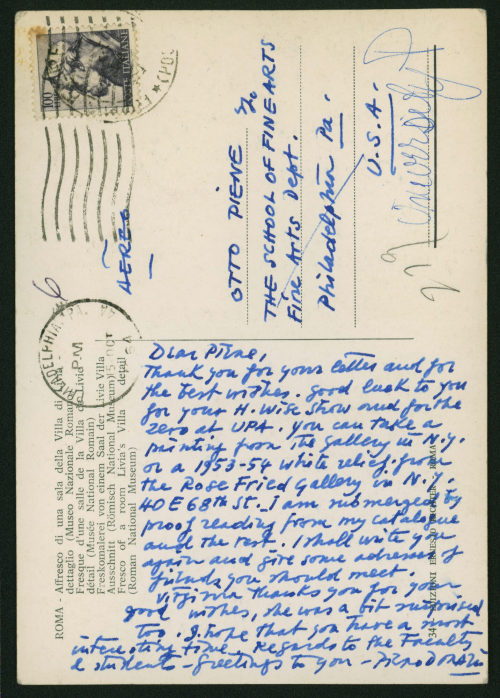 100
POSTE ITALIANE
AEREO
OTTO PIENE c/o
THE SCHOOL OF FINE ARTS
Fine Arts Dept.
Philadelphia Pa.
U.S.A.
6
PHILADELPHIA, PA.
PM
15 OCT
ROMA - Affresco di una sala della Villa di Livia -
dettaglio (Museo Nazionale Romano)
Fresque d'une salle de la Villa de Livie
détail (Musée National Romain)
Freskomalerei von einem Saal der Livie Villa
Ausschnitt (Römisch National Museum)
Fresco of a room Livia's Villa - detail
(Roman National Museum)
Dear Piene,
Thank you for your letter and for
the best wishes. Good luck to you
for your H. Wise Show and for the
zero at UPA. You can take a
painting from the gallery in N.Y.
or a 1953-54 white relief from
the Rose Fried Gallery in N.Y.
40 E 68th St. I am submerged by
proof reading from my catalogue
and the rest. I shall write you
again and give some adresses of
friends you should meet.
Virginia thanks you for your
good wishes, she was a bit surprised
too. I hope that you have a most
interesting time. Regards to the Faculty
& students - Greetings to you - Piero DORAZIO